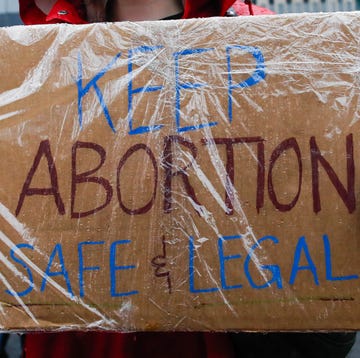 KEEP
ABORTION
SAFE & LEGAL